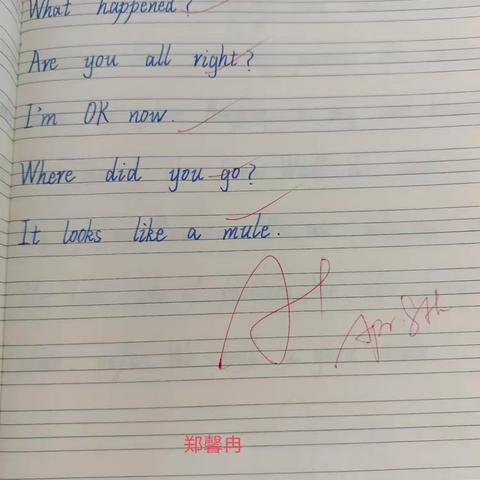 What happened?
Are you all right?
I'm OK now.
Where did you go?
It looks like a mule.
A+
Apr. 8th
郑馨冉